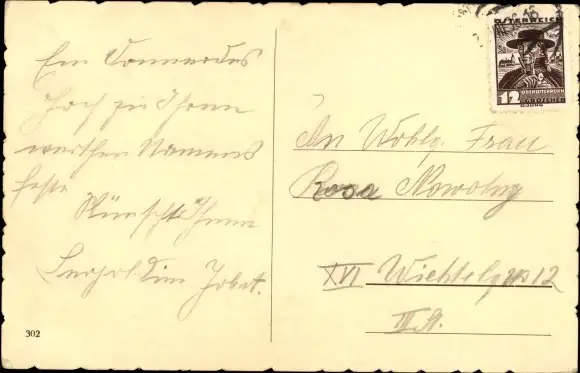 Ein Donnerdes
Hoch zu Ihrem
werthen Namens
feste
Wünscht Ihnen
Leopoldine Jobst.
302
ÖSTERREICH
12
OBERÖSTERREICH
GROSCHEN
An Wohlg. Frau
Rosa Nowotny
XVI Wichtelg 12
III